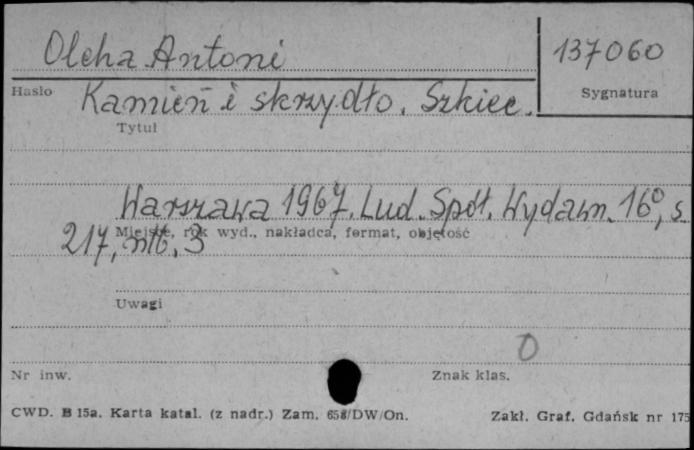 Olcha Antoni
137060
Hasło
Sygnatura
Kamień i skrzydło. Szkice.
Tytuł
Warszawa 1967. Lud. Spół. Wydawn. 16⁰, s.
217, nlb. 3
Miejsce, rok wyd., nakładca, format, objętość
Uwagi
0
Nr inw.
Znak klas.
CWD. B 15a. Karta katal. (z nadr.) Zam. 658/DW/On.
Zakł. Graf. Gdańsk nr 175